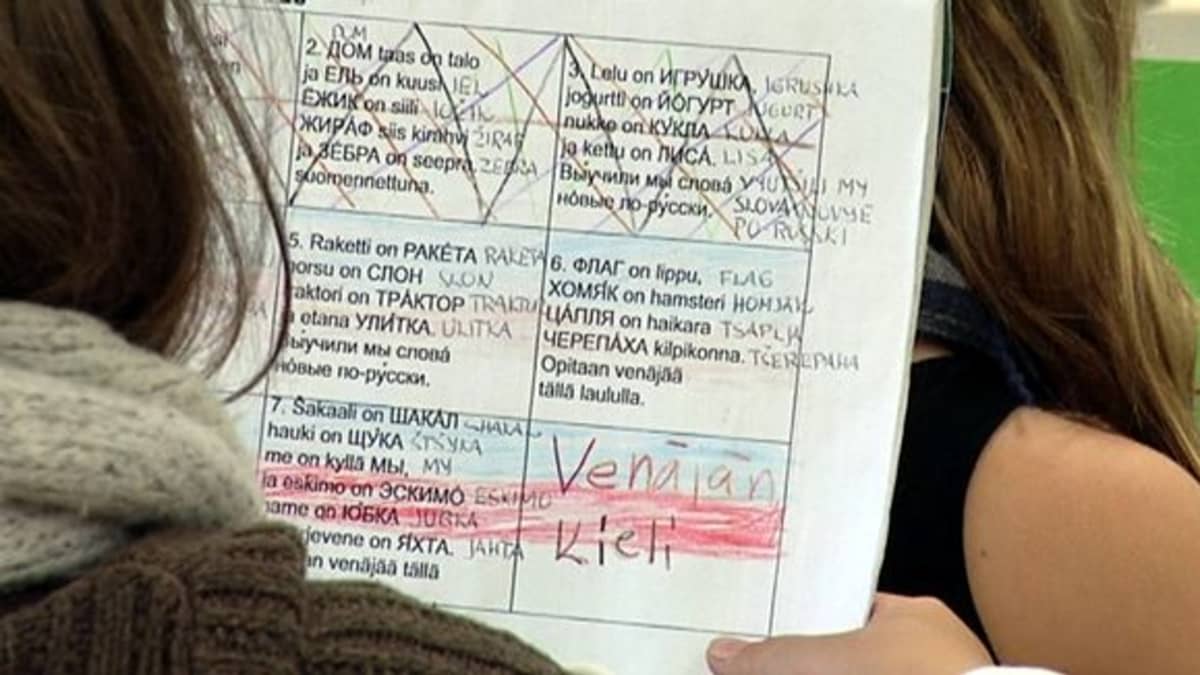 DOM
2. ДОМ taas on talo
ja ЕЛЬ on kuusi JEL
ЁЖИК on siili
ЖИРА́Ф siis kirahvi ŽIRAF
ja ЗЕ́БРА on seepra, ZEBRA
suomennettuna.
3. Lelu on ИГРУ́ШКА, IGRUSHKA
jogurtti on ЙО́ГУРТ JOGURT
nukke on КУ́КЛА KUKLA
ja kettu on ЛИСА́. LISA
Вы́учили мы слова́ VYUTŠILI MY
но́вые по-ру́сски. SLOVA NOVYE
PO-RUSSKI
5. Raketti on РАКЕ́ТА RAKETA
norsu on СЛОН SLON
traktori on ТРА́КТОР
ja etana УЛИ́ТКА. ULITKA
Вы́учили мы слова́
но́вые по-ру́сски.
6. ФЛАГ on lippu, FLAG
ХОМЯ́К on hamsteri HOMJAK
ЦА́ПЛЯ on haikara TSAPLJA
ЧЕРЕПА́ХА kilpikonna. TŠEREPAHA
Opitaan venäjää
tällä laululla.
7. Šakaali on ШАКА́Л
hauki on ЩУ́КА
me on kyllä МЫ, MY
ja eskimo on ЭСКИМО́ ESKIMO
hame on Ю́БКА JUBKA
on Я́ХТА. JAHTA
venäjää tällä
Venäjän
Kieli